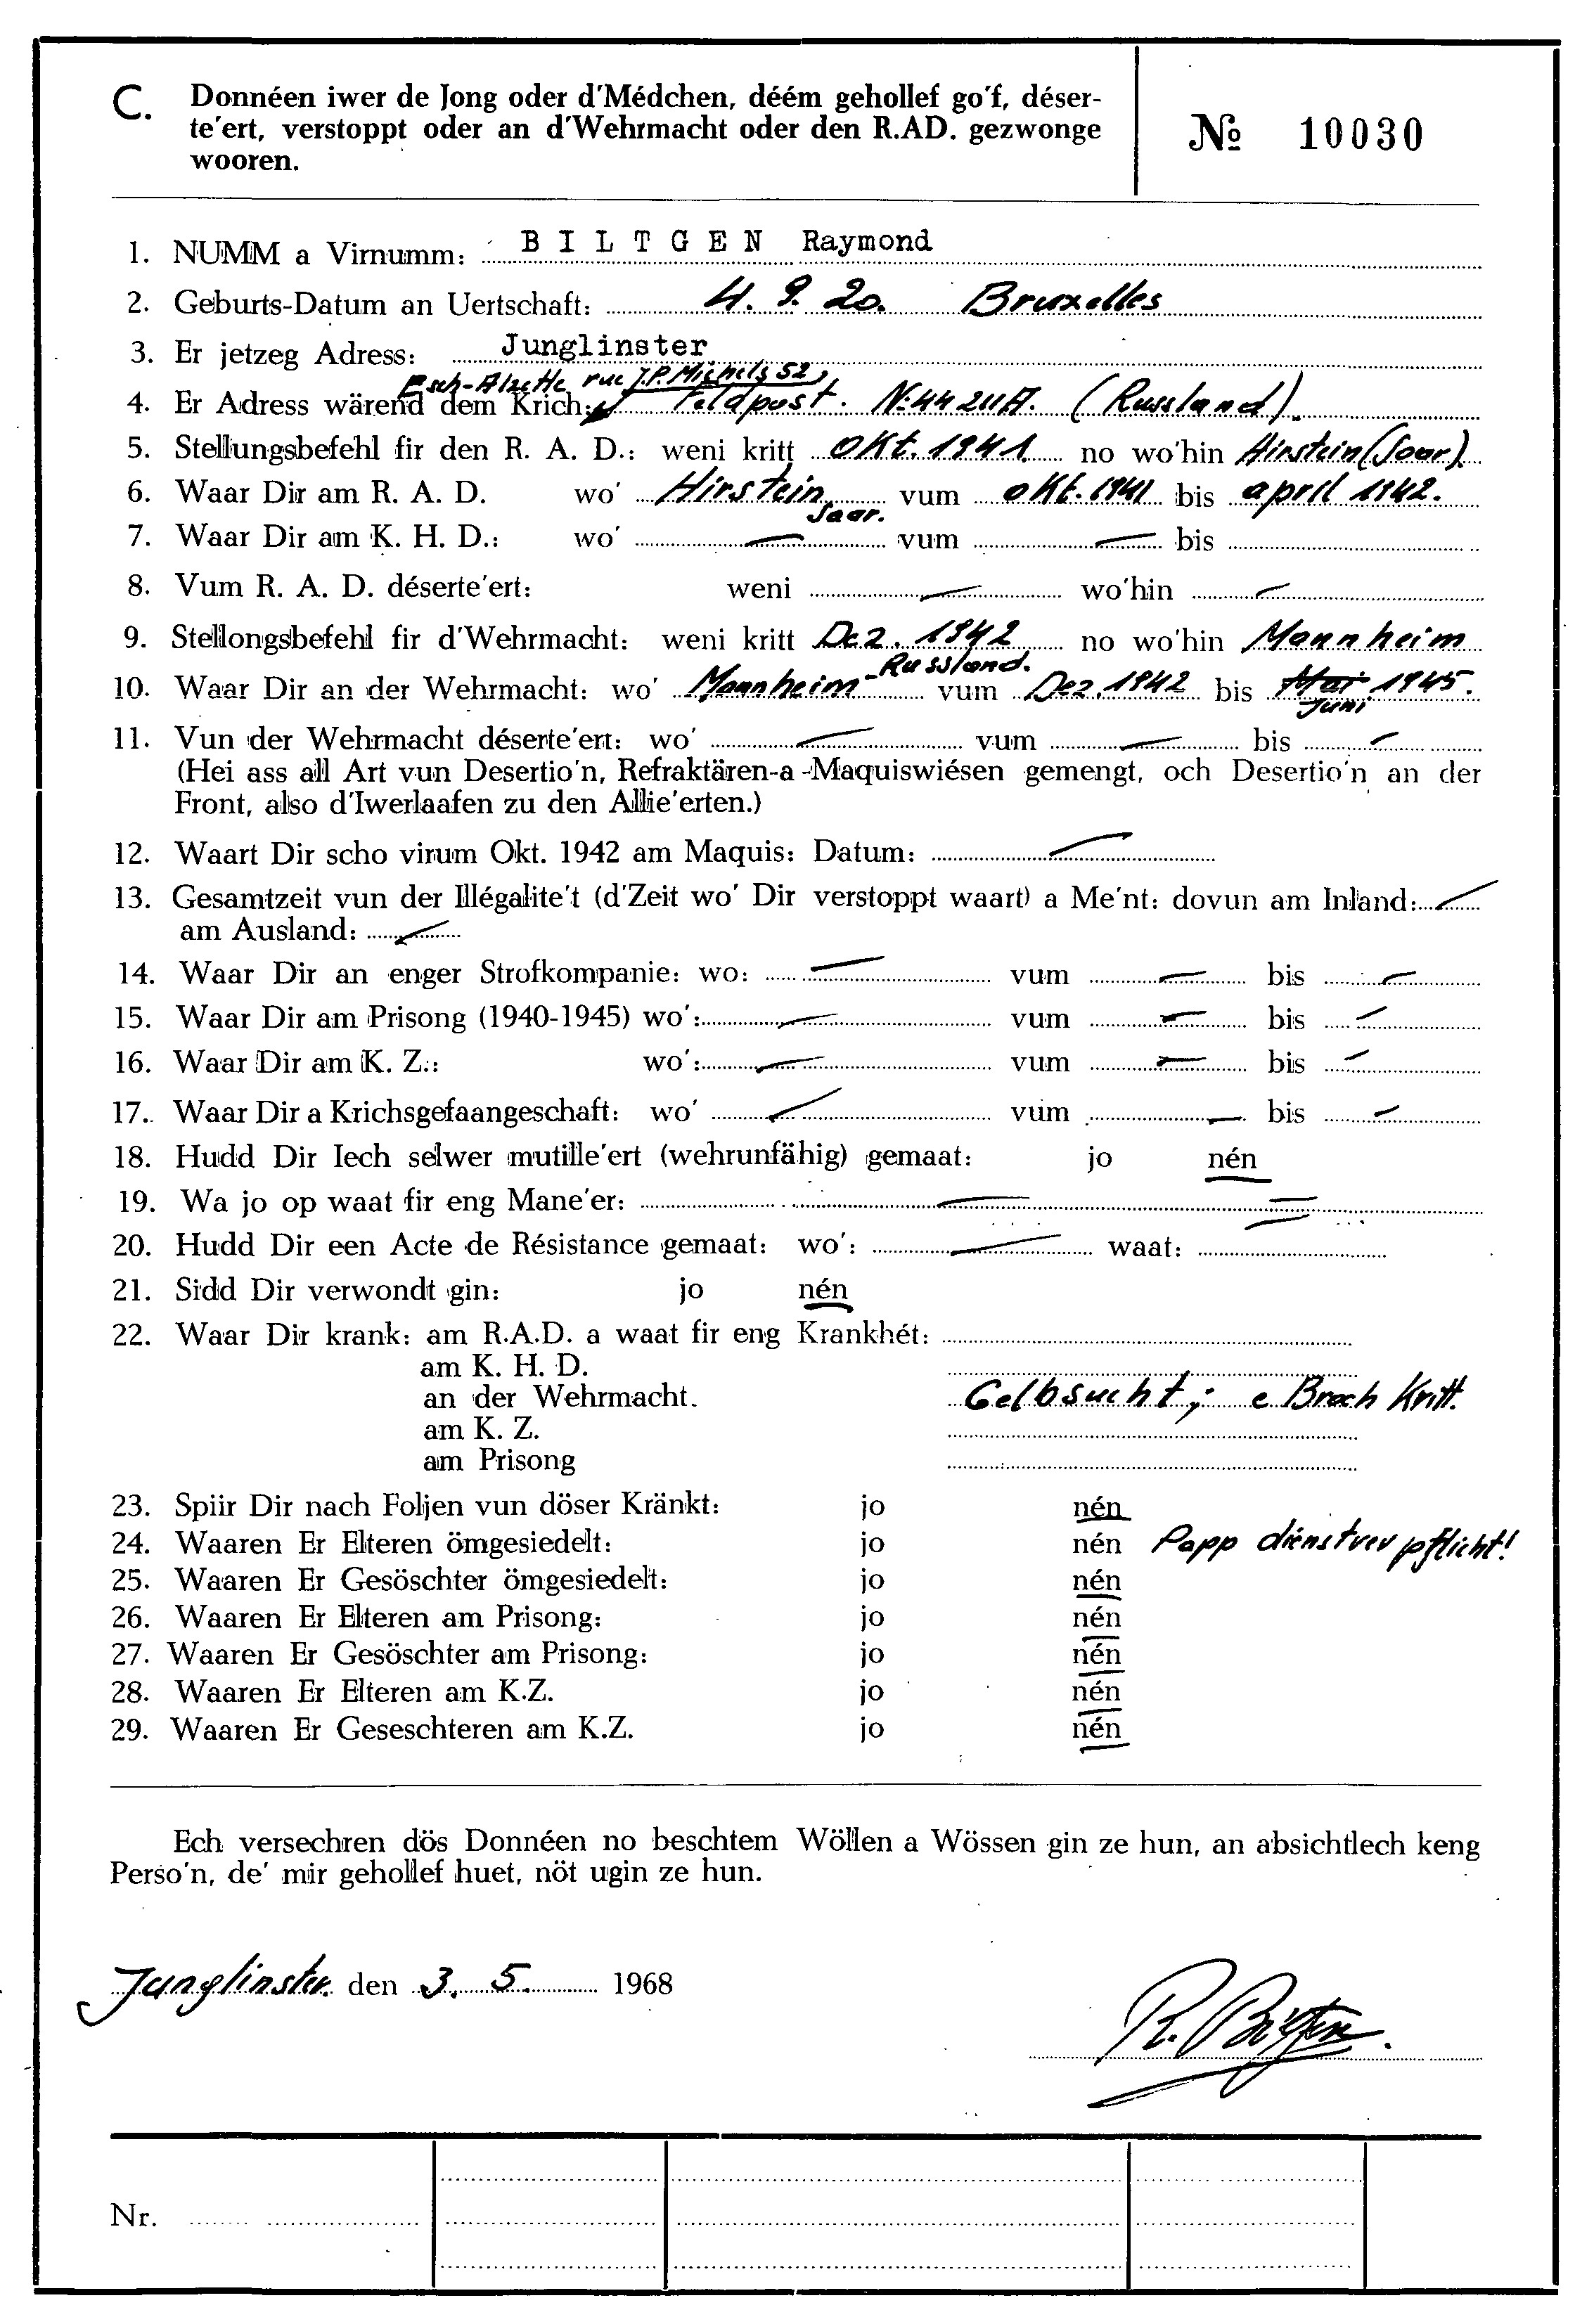 C. Donnéen iwer de Jong oder d'Médchen, déém gehollef go'f, déser-
te'ert, verstoppt oder an d'Wehrmacht oder den R.AD. gezwonge
wooren.
№ 10030
1. NUMM a Virnumm: BILTGEN Raymond
2. Geburts-Datum an Uertschaft: 4. 9. 20. Bruxelles
3. Er jetzeg Adress: Junglinster
Esch-Alzette rue J.P. Michels 52,
4. Er Adress wärend dem Krich: Feldpost. N: 44211A. (Russland).
5. Stellungsbefehl fir den R. A. D.: weni kritt Okt. 1941 no wo'hin Hirstein (Saar).
6. Waar Dir am R. A. D. wo' Hirstein Saar. vum Okt. 1941 bis april 1942.
7. Waar Dir am K. H. D.: wo' — vum — bis
8. Vum R. A. D. déserte'ert: weni — wo'hin —
9. Stellongsbefehl fir d'Wehrmacht: weni kritt Dez. 1942 no wo'hin Mannheim
10. Waar Dir an der Wehrmacht: wo' Mannheim - Russland. vum Dez. 1942 bis Mai Juni 1945.
11. Vun der Wehrmacht déserte'ert: wo' — vum — bis —
(Hei ass all Art vun Desertio'n, Refraktären-a-Maquiswiésen gemengt, och Desertio'n an der
Front, also d'Iwerlaafen zu den Allie'erten.)
12. Waart Dir scho virum Okt. 1942 am Maquis: Datum: —
13. Gesamtzeit vun der Illégalite't (d'Zeit wo' Dir verstoppt waart) a Me'nt: dovun am Inland: —
am Ausland: —
14. Waar Dir an enger Strofkompanie: wo: — vum — bis —
15. Waar Dir am Prisong (1940-1945) wo': — vum — bis —
16. Waar Dir am K. Z.: wo': — vum — bis —
17. Waar Dir a Krichsgefaangeschaft: wo' — vum — bis —
18. Hudd Dir Iech selwer mutille'ert (wehrunfähig) gemaat: jo nén
19. Wa jo op waat fir eng Mane'er: — —
20. Hudd Dir een Acte de Résistance gemaat: wo': — waat: —
21. Sidd Dir verwondt gin: jo nén
22. Waar Dir krank: am R.A.D. a waat fir eng Krankhét:
am K. H. D.
an der Wehrmacht. Gelbsucht; e Broch Kritt.
am K. Z.
am Prisong
23. Spiir Dir nach Foljen vun döser Kränkt: jo nén
24. Waaren Er Elteren ömgesiedelt: jo nén Papp dienstverpflicht!
25. Waaren Er Gesöschter ömgesiedelt: jo nén
26. Waaren Er Elteren am Prisong: jo nén
27. Waaren Er Gesöschter am Prisong: jo nén
28. Waaren Er Elteren am K.Z. jo nén
29. Waaren Er Geseschteren am K.Z. jo nén
Ech versechren dös Donnéen no beschtem Wöllen a Wössen gin ze hun, an absichtlech keng
Perso'n, de' mir gehollef huet, nöt ugin ze hun.
Junglinster. den 3. 5. 1968
R. Biltgen.
Nr.